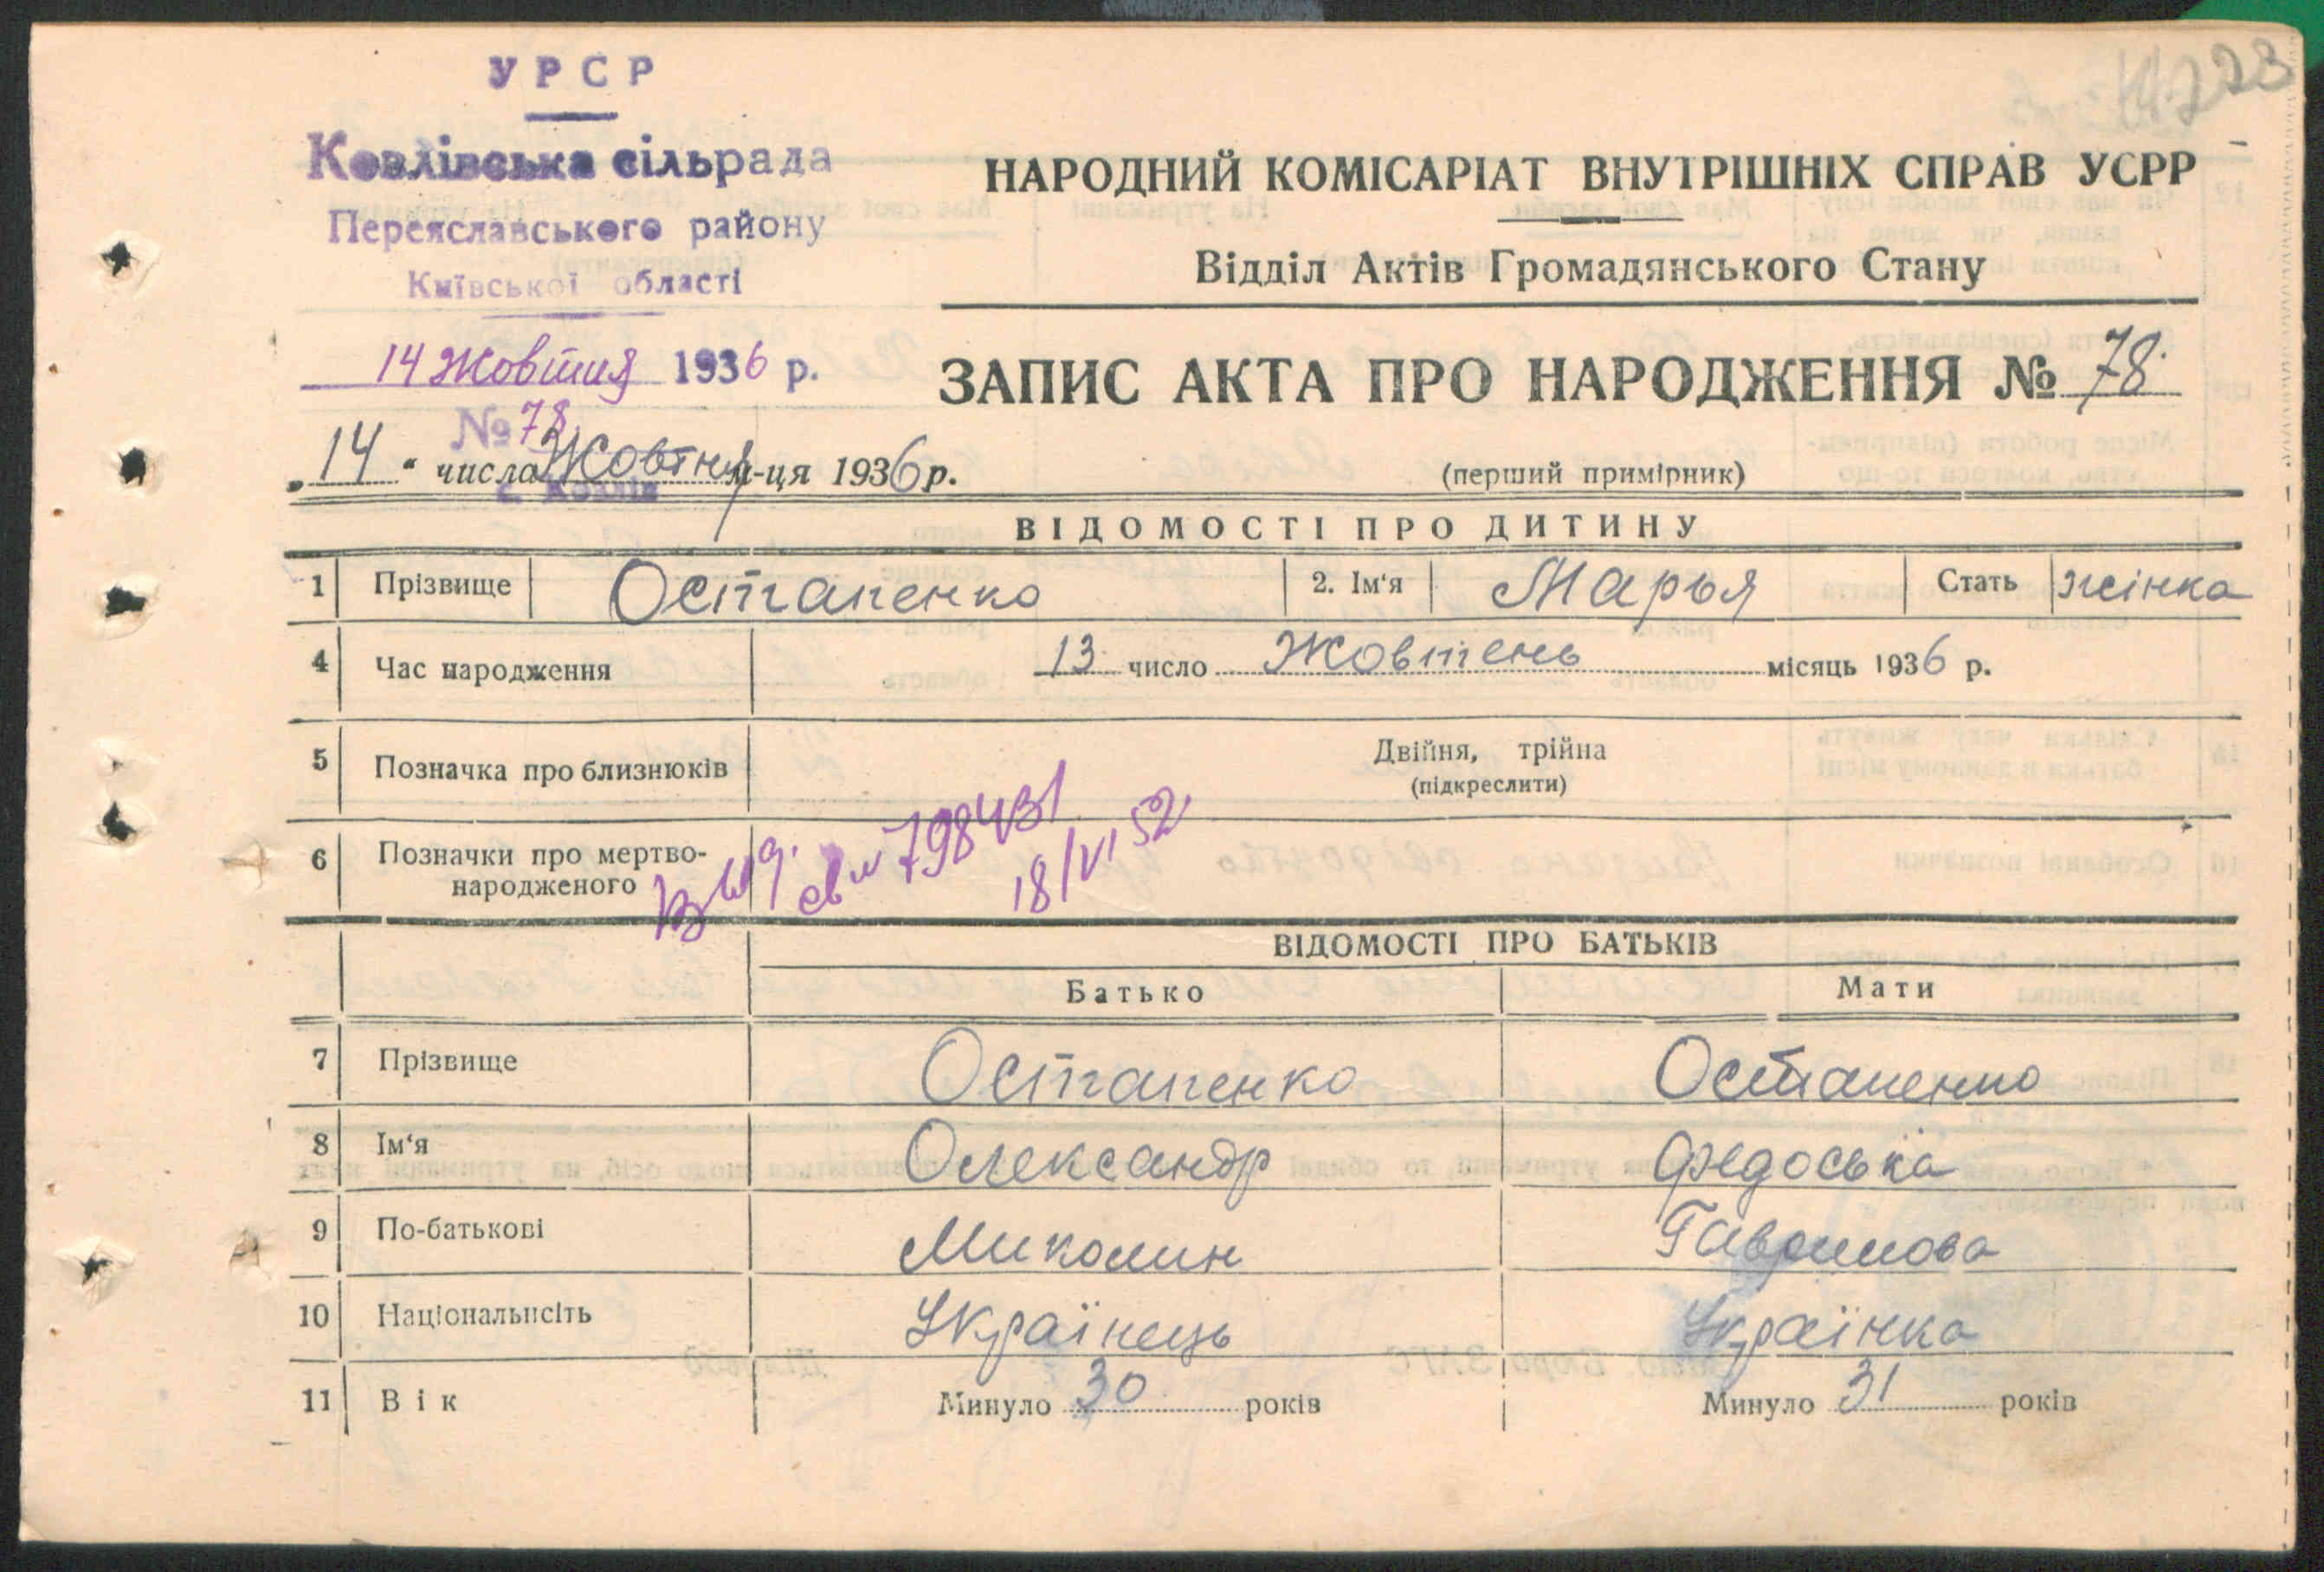 УРСР
Козлівська сільрада
Переяславського району
Київської області
14 Жовтня 1936 р.
№ 78
с. Козлів
223
НАРОДНИЙ КОМІСАРІАТ ВНУТРІШНІХ СПРАВ УСРР
Відділ Актів Громадянського Стану
ЗАПИС АКТА ПРО НАРОДЖЕННЯ № 78.
„14" числа Жовтня м-ця 1936 р.
(перший примірник)
ВІДОМОСТІ ПРО ДИТИНУ
1 Прізвище Остапенко 2. Ім'я Марья Стать жінка
4 Час народження 13 число Жовтень місяць 1936 р.
5 Позначка про близнюків Двійня, трійна
(підкреслити)
6 Позначки про мертво-
народженого
вид. св № 798431
18/VI 52
ВІДОМОСТІ ПРО БАТЬКІВ
Батько Мати
7 Прізвище Остапенко Остапенко
8 Ім'я Олександр Федоська
9 По-батькові Миколин Гаврилова
10 Національнсіть Українець Українка
11 Вік Минуло 30 років Минуло 31 років